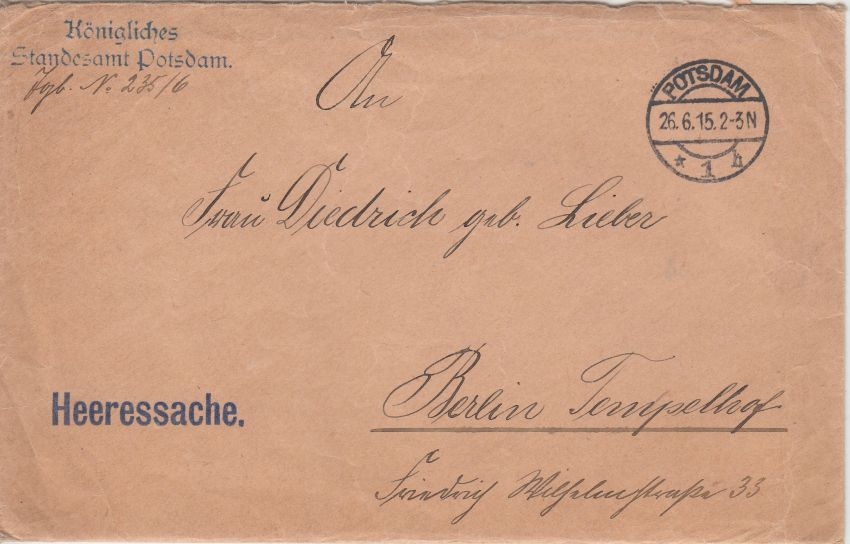 Königliches
Standesamt Potsdam.
Jgb. No 235/6
An
POTSDAM
26.6.15.2-3N
* 1 h
Frau Diedrich geb. Lieber
Heeressache.
Berlin Tempelhof
Friedrich Wilhelmstraße 33